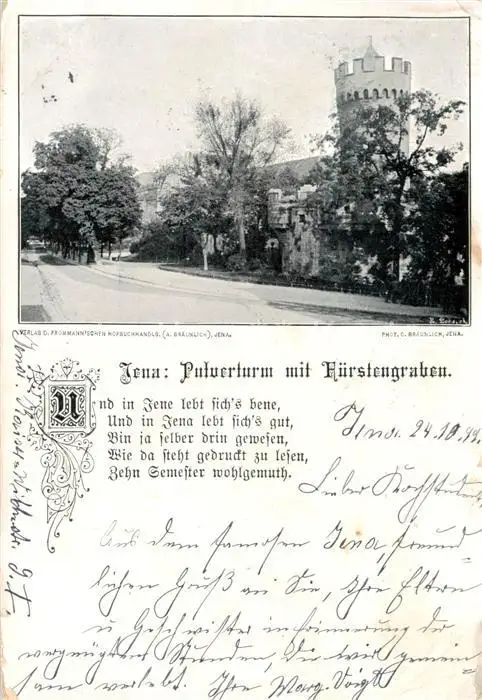 VERLAG D. FROMMANN'SCHEN HOFBUCHHANDLG. (A. BRÄUNLICH), JENA.
PHOT. C. BRÄUNLICH, JENA.
Jena: Pulverturm mit Fürstengraben.
Und in Jene lebt sich's bene,
Und in Jena lebt sich's gut,
Bin ja selber drin gewesen,
Wie da steht gedruckt zu lesen,
Zehn Semester wohlgemuth.
Jena. 24.10.99.
Lieber
Aus dem famosen Jena, freund-
lichen Gruß an Sie, Ihre Eltern
u Geschwister in Erinnerung der
vergnügten Stunden, die wir gemein-
sam verlebt. Ihre Marg. Voigt
Jena.